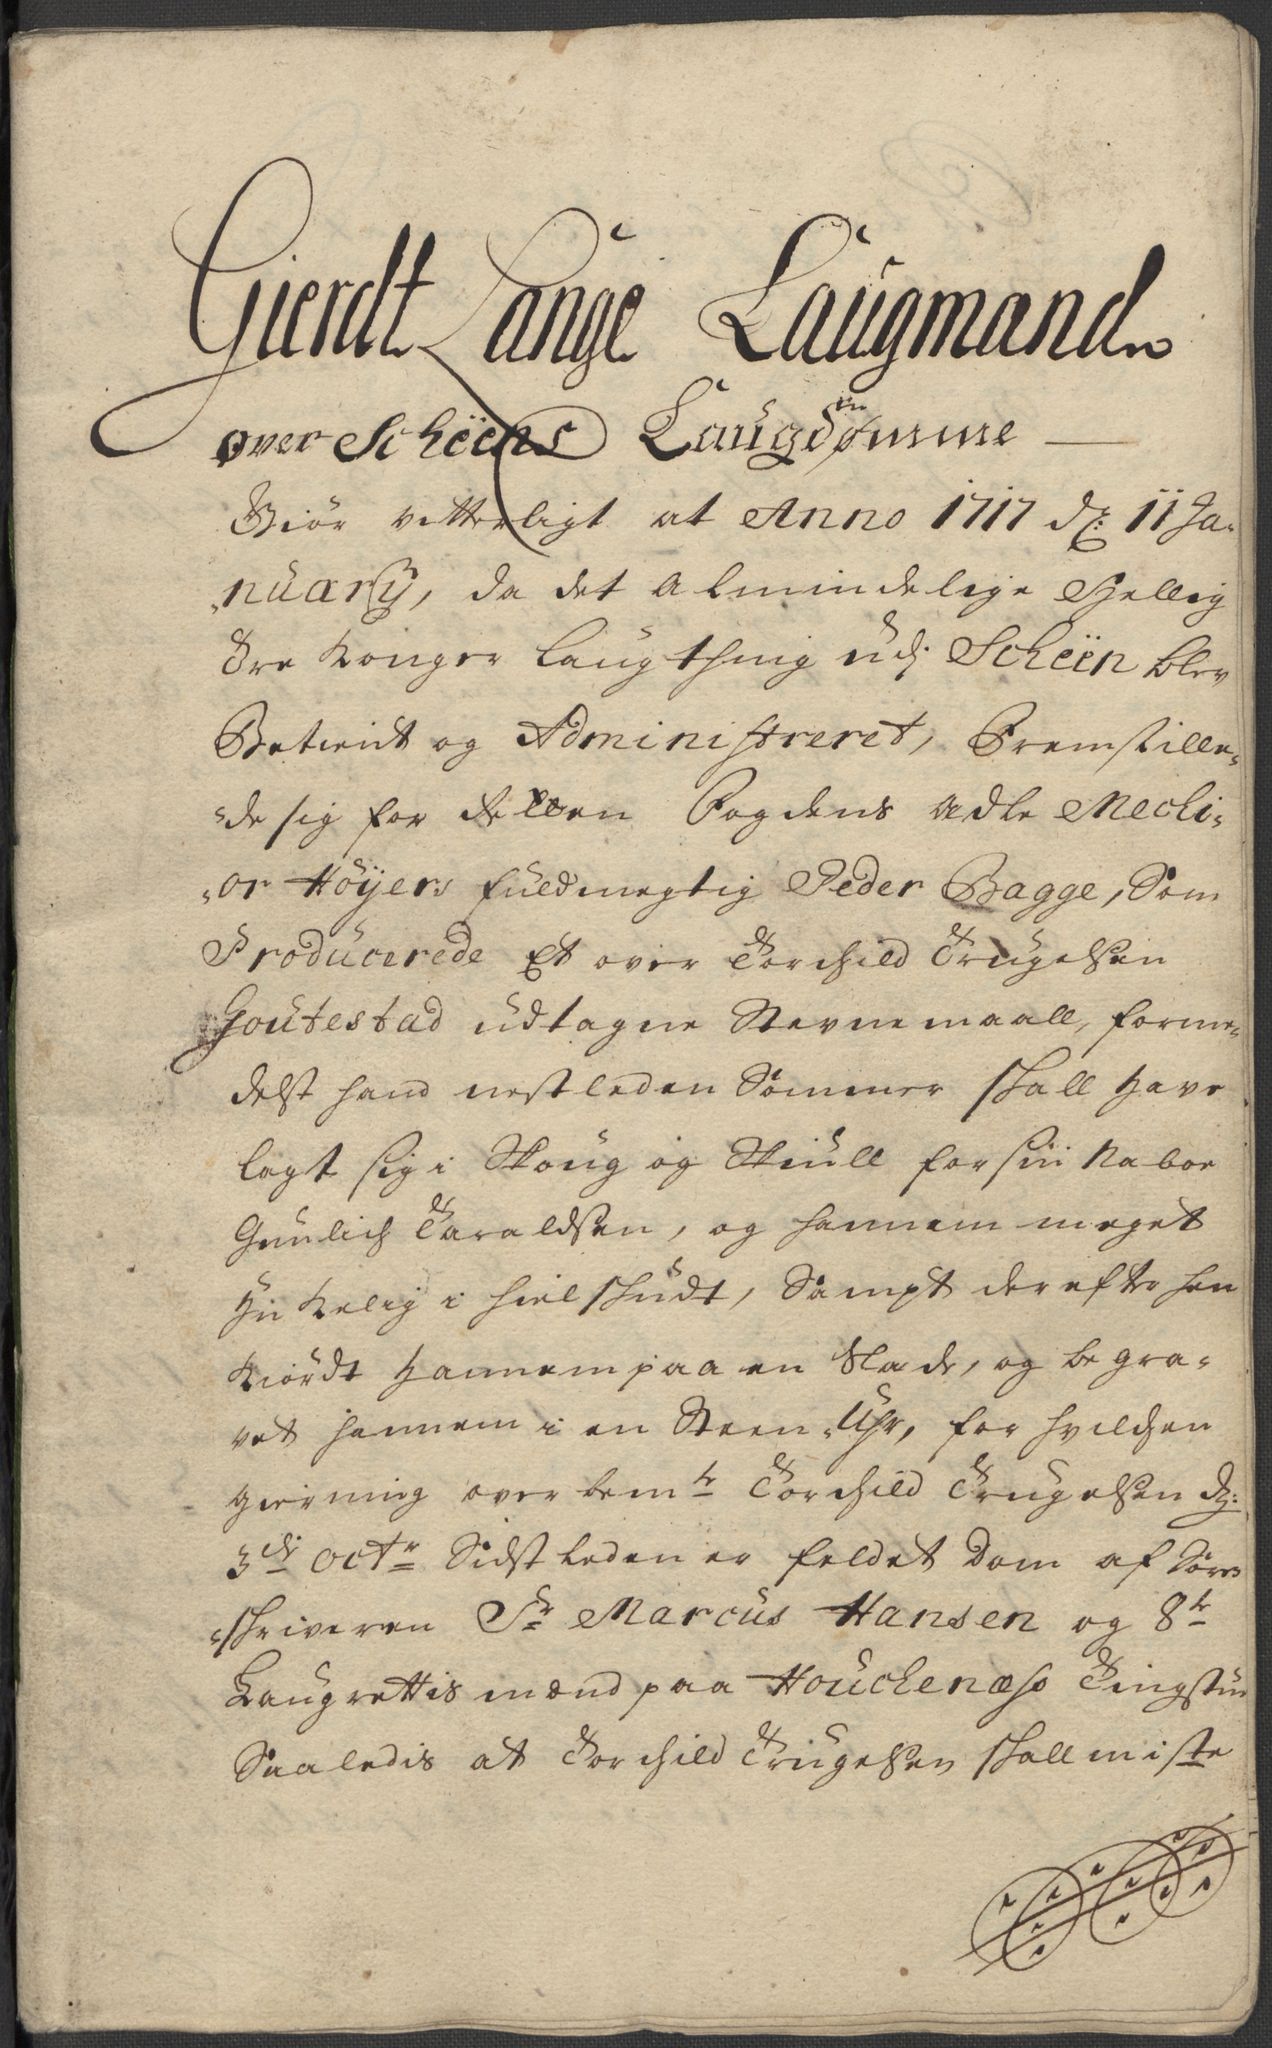 Gierdt Lange Laugmand
over Scheens Laugdømme
Giør vitterligt at Anno 1717 d: 11 Ja-
nuary, da det almindelige Hellig
Tre Konger Laugthing udj Scheen blev
Betient og Administreret, Fremstille-
de sig for Retten Fogdens Adle Mechi-
or Høyers fuldmegtig Peder Bagge, Som
Producerede Et over Torchild Trugelsen
Goutestad udtagne Stevnemaall, forme-
delst hand nestleden Sommer skall have
lagt sig i Skoug og Skiull for sin Naboe
Gunlich Taraldsen, og hannem meget
ynkelig i hiel skudt, Sampt derefter hen
kiørdt hannem paa en Slæde, og begra-
vet hannem i en Steen-Uhr, for hvilchen
gierning over bemte Torchild Trugelsen d:
3die octr Sidstleden er feldet Dom af Sören
skriveren Sr Marcus Hansen og 8te
Laugrettis mænd paa Houchenæss Tingstue
Saaledis at Torchild Trugelsen skall miste